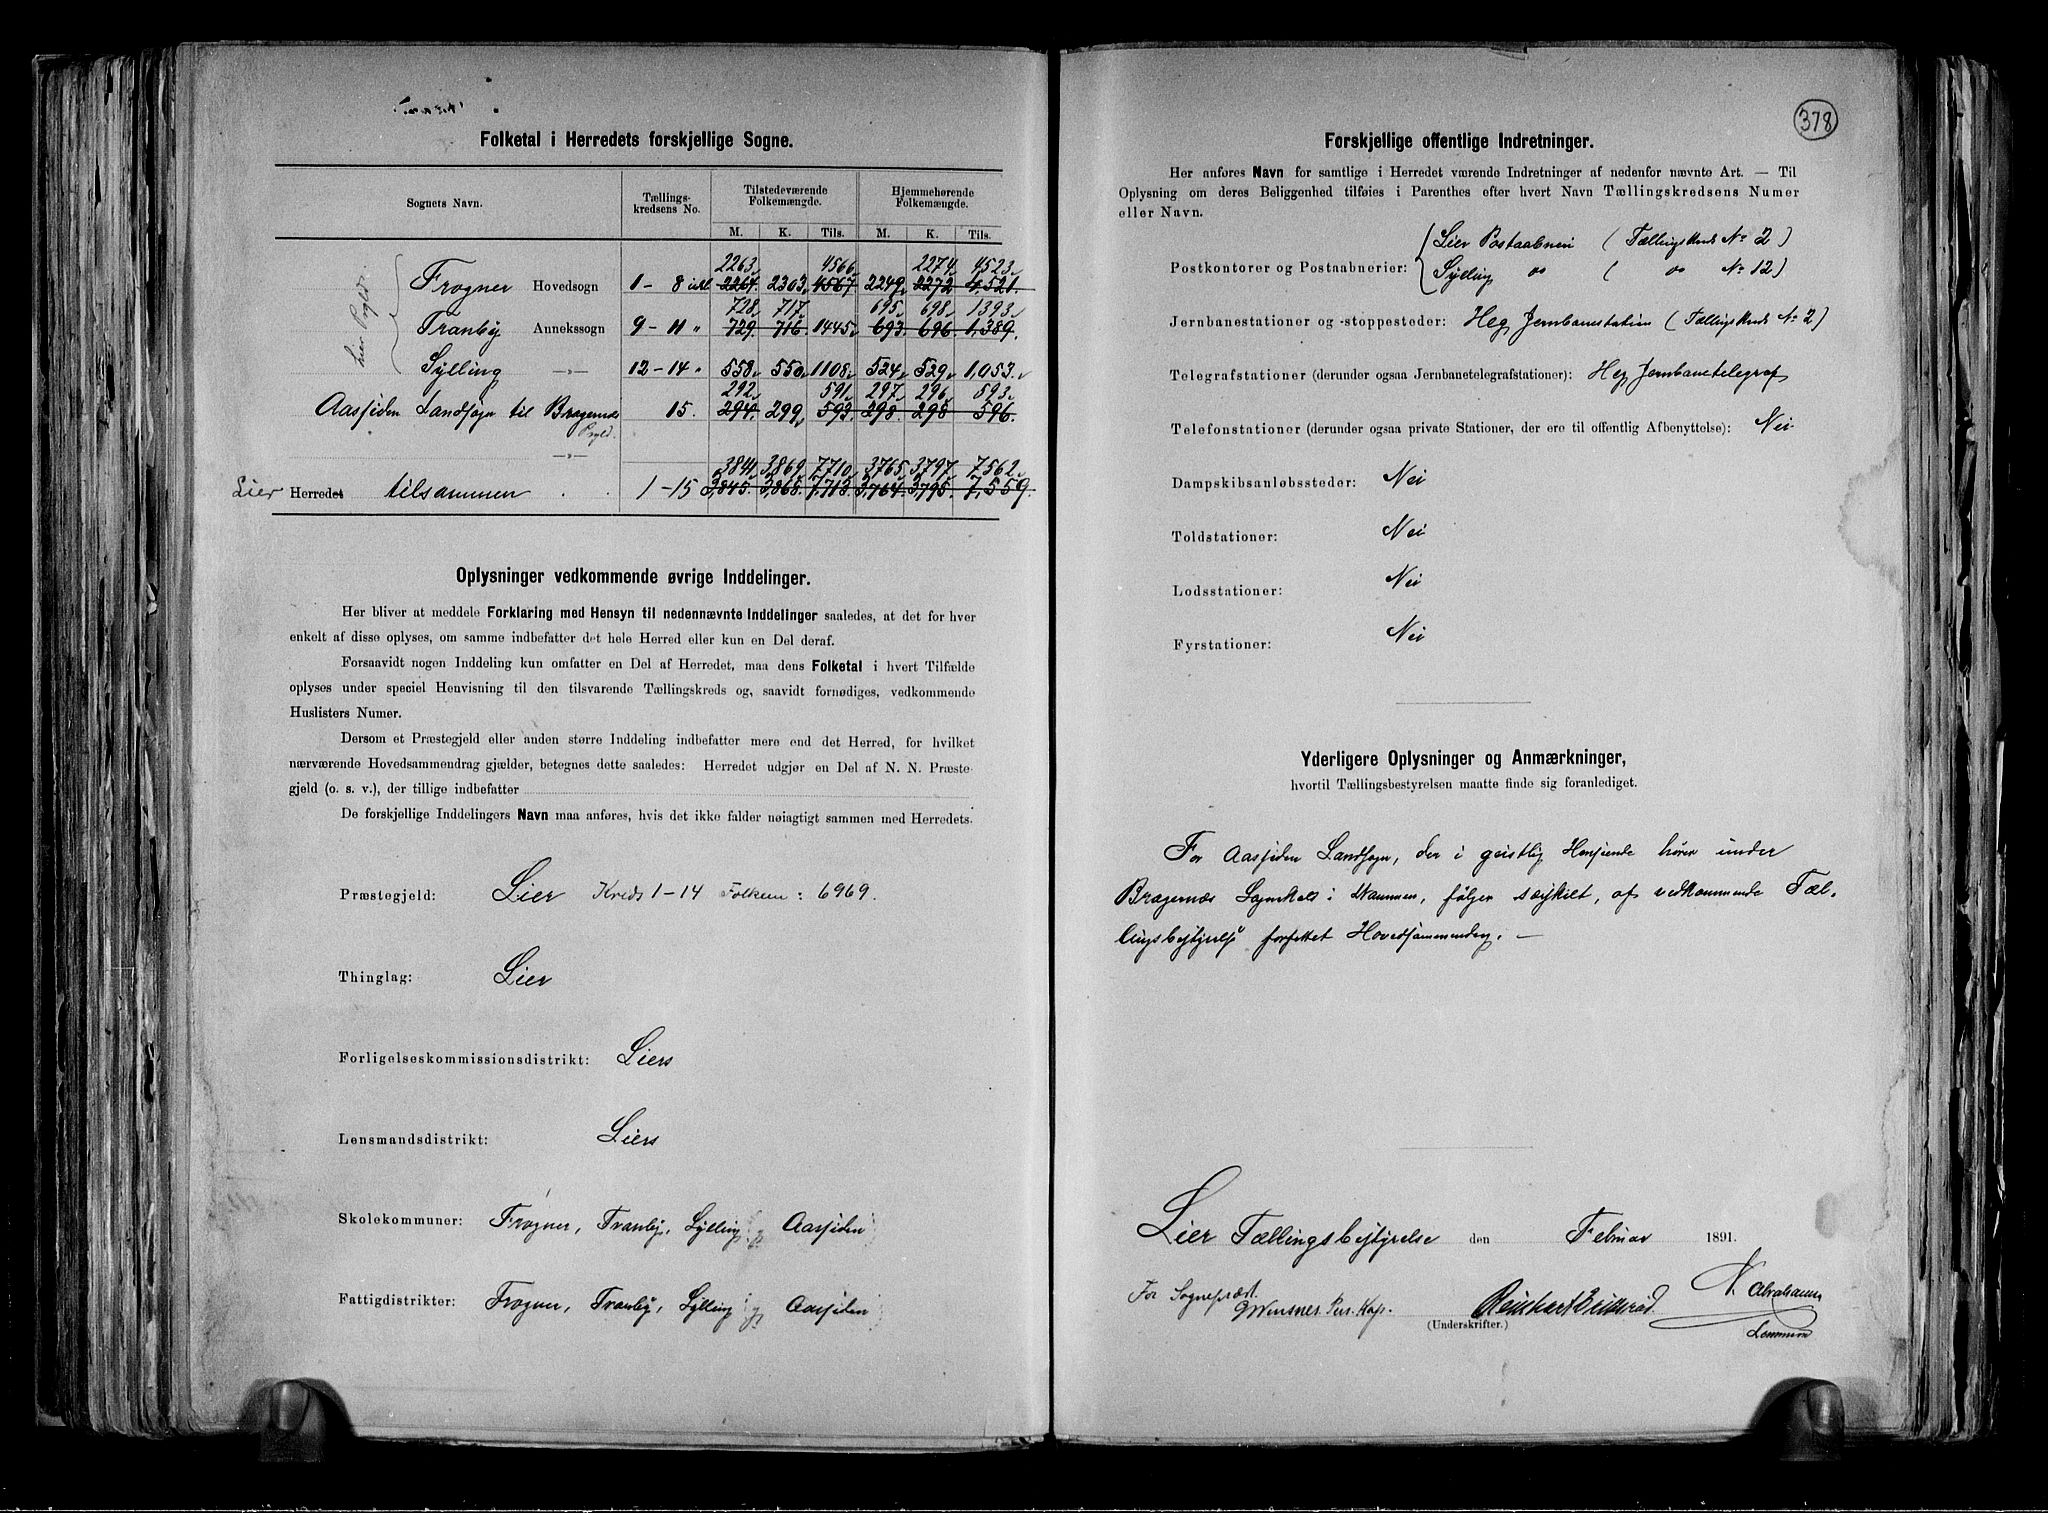 Folketal i Herredets forskjellige Sogne.
Sognets Navn. Tællingskredsens No. Tilstedeværende Folkemængde. Hjemmehørende Folkemængde.
M. K. Tils. M. K. Tils.
Lier Pgld.
2263 4566 2274 4523
Frogner Hovedsogn 1 - 8 incl 2264 2303 4567 2249 2272 4,521
728 717 695 698 1393
Tranby Annekssogn 9 - 11 " 729 716 1445 693 696 1,389
Sylling —„— 12 - 14 " 558 550 1108 524 529 1,053
292 591 297 296 593
Aassiden Landsogn til Bragernæs Pgld. 15. 294 299 593 298 298 596
—„—
3841 3869 7710 3765 3797 7562
Lier Herredet tilsammen 1 - 15 3,845 3,868 7,713 3,764 3,795 7,559
Oplysninger vedkommende øvrige Inddelinger.
Her bliver at meddele Forklaring med Hensyn til nedennævnte Inddelinger saaledes, at det for hver
enkelt af disse oplyses, om samme indbefatter det hele Herred eller kun en Del deraf.
Forsaavidt nogen Inddeling kun omfatter en Del af Herredet, maa dens Folketal i hvert Tilfælde
oplyses under speciel Henvisning til den tilsvarende Tællingskreds og, saavidt fornødiges, vedkommende
Huslisters Numer.
Dersom et Præstegjeld eller anden større Inddeling indbefatter mere end det Herred, for hvilket
nærværende Hovedsammendrag gjælder, betegnes dette saaledes: Herredet udgjør en Del af N. N. Præste-
gjeld (o. s. v.), der tillige indbefatter
De forskjellige Inddelingers Navn maa anføres, hvis det ikke falder nøiagtigt sammen med Herredets.
Præstegjeld: Lier Kreds 1-14 Folkem: 6969.
Thinglag: Lier
Forligelseskommissionsdistrikt: Liers
Lensmandsdistrikt: Liers
Skolekommuner: Frogner, Tranby, Sylling og Aassiden
Fattigdistrikter: Frogner, Tranby, Sylling og Aassiden
378
Forskjellige offentlige Indretninger.
Her anføres Navn for samtlige i Herredet værende Indretninger af nedenfor nævnte Art. — Til
Oplysning om deres Beliggenhed tilføies i Parenthes efter hvert Navn Tællingskredsens Numer
eller Navn.
Lier Postaabneri (Tællingskreds No 2)
Postkontorer og Postaabnerier:
Sylling do ( do No 12)
Jernbanestationer og -stoppesteder: Heg Jernbanestation (Tællingskreds No 2)
Telegrafstationer (derunder ogsaa Jernbanetelegrafstationer): Heg Jernbanetelegraf
Telefonstationer (derunder ogsaa private Stationer, der ere til offentlig Afbenyttelse): Nei
Dampskibsanløbssteder: Nei
Toldstationer: Nei
Lodsstationer: Nei
Fyrstationer: Nei
Yderligere Oplysninger og Anmærkninger,
hvortil Tællingsbestyrelsen maatte finde sig foranlediget.
For Aassiden Landsogn, der i geistlig Henseende hører under
Bragernæs Sognekald i Drammen, følger særskilt, af vedkommende Tæl-
lingsbestyrelse forfattet Hovedsammendrag. —
Lier Tællingsbestyrelse den Februar 1891.
For Sognepræst
Wensner Pers. Kap.
Abrahamsen
(Underskrifter.)
Lensmand